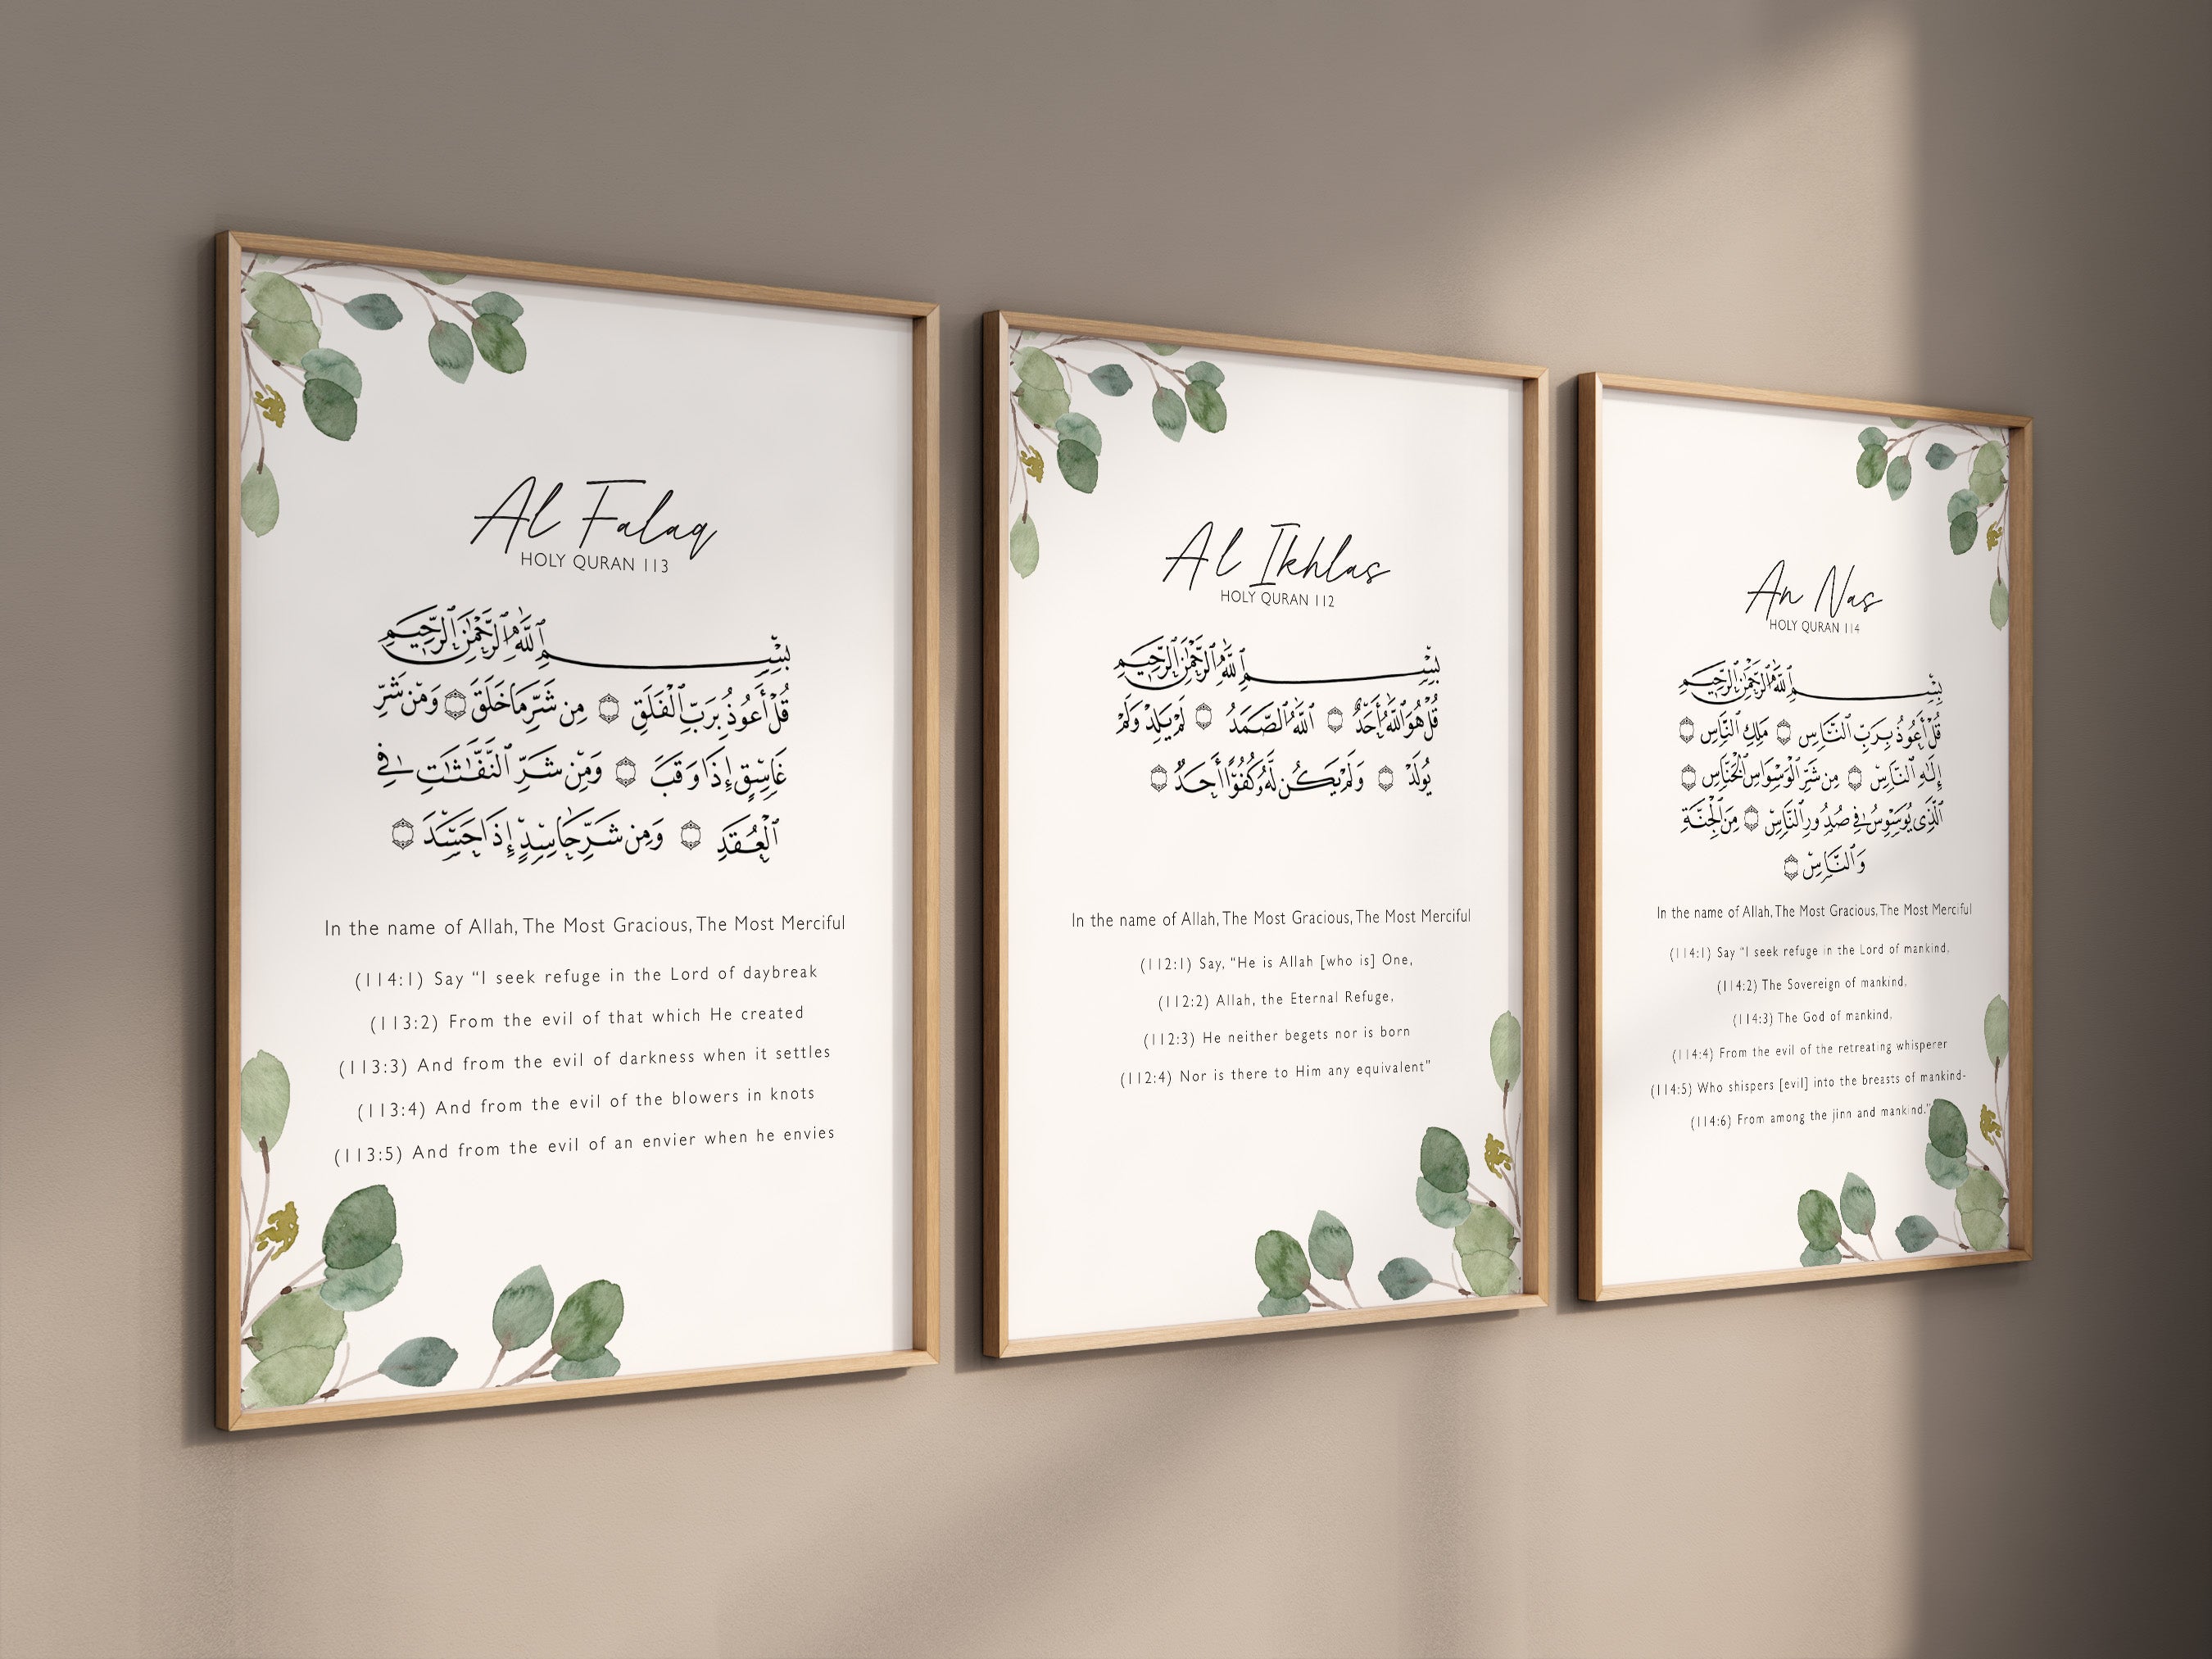 Al Falaq
HOLY QURAN 113
بِسْمِ ٱللَّهِ ٱلرَّحْمَٰنِ ٱلرَّحِيمِ
قُلْ أَعُوذُ بِرَبِّ ٱلْفَلَقِ ۝ مِن شَرِّ مَا خَلَقَ ۝ وَمِن شَرِّ
غَاسِقٍ إِذَا وَقَبَ ۝ وَمِن شَرِّ ٱلنَّفَّٰثَٰتِ فِى
ٱلْعُقَدِ ۝ وَمِن شَرِّ حَاسِدٍ إِذَا حَسَدَ ۝
In the name of Allah, The Most Gracious, The Most Merciful
(114:1) Say “I seek refuge in the Lord of daybreak
(113:2) From the evil of that which He created
(113:3) And from the evil of darkness when it settles
(113:4) And from the evil of the blowers in knots
(113:5) And from the evil of an envier when he envies
Al Ikhlas
HOLY QURAN 112
بِسْمِ ٱللَّهِ ٱلرَّحْمَٰنِ ٱلرَّحِيمِ
قُلْ هُوَ ٱللَّهُ أَحَدٌ ۝ ٱللَّهُ ٱلصَّمَدُ ۝ لَمْ يَلِدْ وَلَمْ
يُولَدْ ۝ وَلَمْ يَكُن لَّهُۥ كُفُوًا أَحَدٌۢ ۝
In the name of Allah, The Most Gracious, The Most Merciful
(112:1) Say, “He is Allah [who is] One,
(112:2) Allah, the Eternal Refuge,
(112:3) He neither begets nor is born
(112:4) Nor is there to Him any equivalent”
An Nas
HOLY QURAN 114
بِسْمِ ٱللَّهِ ٱلرَّحْمَٰنِ ٱلرَّحِيمِ
قُلْ أَعُوذُ بِرَبِّ ٱلنَّاسِ ۝ مَلِكِ ٱلنَّاسِ ۝
إِلَٰهِ ٱلنَّاسِ ۝ مِن شَرِّ ٱلْوَسْوَاسِ ٱلْخَنَّاسِ ۝
ٱلَّذِى يُوَسْوِسُ فِى صُدُورِ ٱلنَّاسِ ۝ مِنَ ٱلْجِنَّةِ
وَٱلنَّاسِ ۝
In the name of Allah, The Most Gracious, The Most Merciful
(114:1) Say “I seek refuge in the Lord of mankind,
(114:2) The Sovereign of mankind,
(114:3) The God of mankind,
(114:4) From the evil of the retreating whisperer
(114:5) Who shispers [evil] into the breasts of mankind-
(114:6) From among the jinn and mankind.”